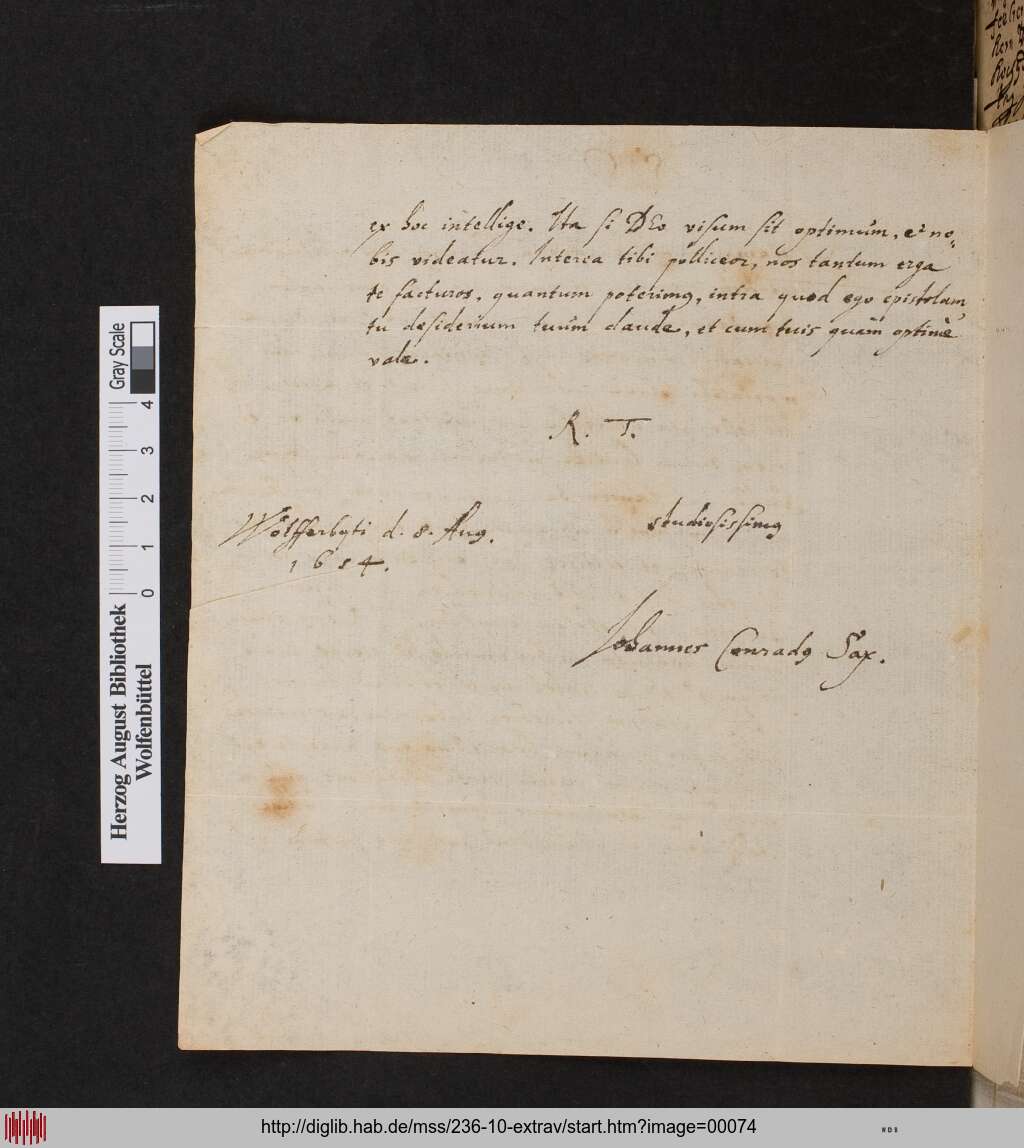 ex hoc intellige. Ita si DEo visum sit optimum, et no=
bis videatur. Interea tibi polliceor, nos tantum erga
te facturos, quantum poterimꝰ, intra quod ego epistolam
tu desiderium tuum claude, et cum tuis quàm optimè
vale.
R. T.
studiosissimꝰ
Wolfferbyti d. 8. Aug.
1654.
Johannes Conradꝰ Sax.
Gray Scale
0 1 2 3 4
Herzog August Bibliothek
Wolfenbüttel
http://diglib.hab.de/mss/236-10-extrav/start.htm?image=00074